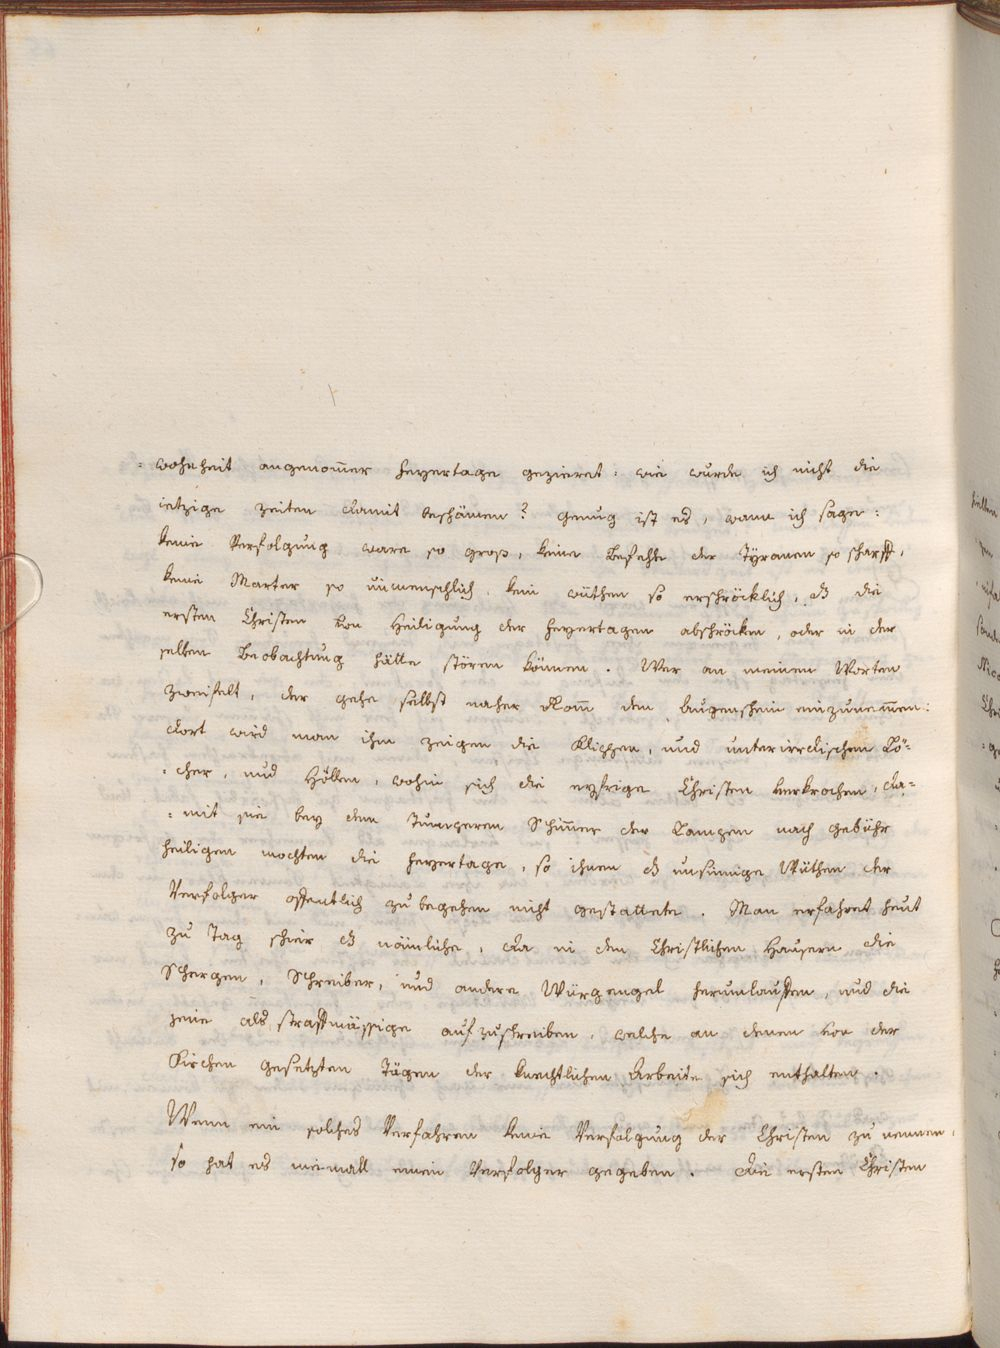 = wohnheit angenom̅er feyertage gezieret: wie wurde ich nicht die
ietzige zeiten damit beschämen? genug ist es, wann ich sage:
keine Verfolgung ware so groß, keine Befehle der Tyranen so scharff,
keine Marter so unmenschlich, kein wüthen so erschröcklich, dz die
ersten Christen von Heiligung der feyertagen abschröcken, oder in der
selben Beobachtung hätte stören können. Wer an meinen Worten
zweifelt, der gehe selbst nacher Rom̅ den Augenschein einzunem̅en:
dort wird man ihm zeigen die Klippen, und unterirrdischen Lö=
=cher, und Höllen, wohin sich die eyfrige Christen verkrochen, da=
=mit sie bey dem Schim̅er der Lampen nach gebühr
heiligen mochten die feyertage, so ihnen dz unsinnige Wüthen der
Verfolger offentlich zu begehen nicht gestattete. Man erfahret heut
zu Tag schier dz nämliche, da in den Christlichen Hausern die
Schergen, Schreiber, und andere Würgengel herumlauffen, und die
jenie als straffmässige aufzuschreiben, welche an denen von der
Kirchen gesetzten Tägen der knechtlichen Arbeite sich enthalten.
Wenn ein solches Verfahren keine Verfolgung der Christen zu nennen,
so hat es niemall einen Verfolger gegeben. Die ersten Christen